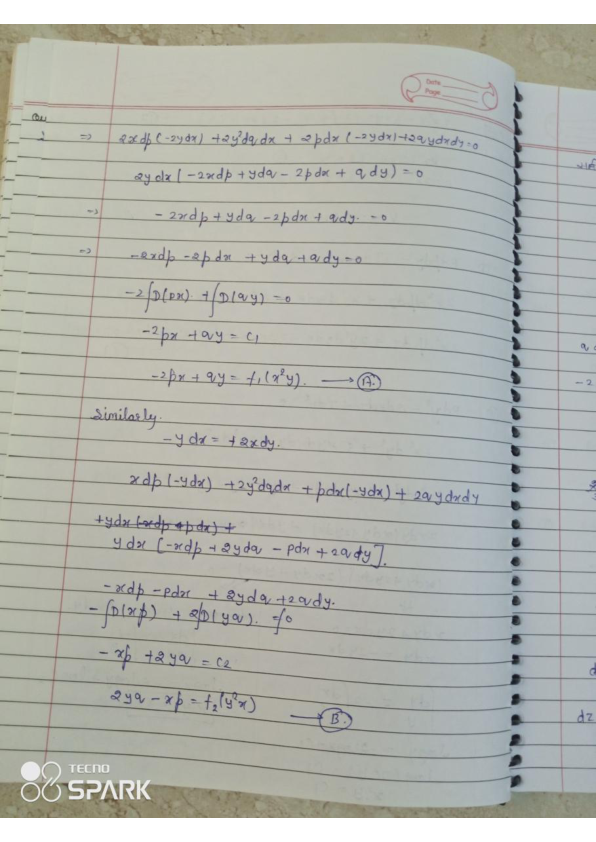 Date
Page
2 ⇒ 2xdp(-2ydx) + 2y²dq dx + 2pdx(-2ydx) + 2qydxdy = 0
2ydx(-2xdp + ydq - 2pdx + qdy) = 0
⇒ -2xdp + ydq - 2pdx + qdy = 0
⇒ -2xdp - 2pdx + ydq + qdy = 0
-2∫D(px) + ∫D(qy) = 0
-2px + qy = c₁
-2px + qy = f₁(x²y). → (A)
Similarly.
-ydx = +2xdy.
xdp(-ydx) + 2y²dqdx + pdx(-ydx) + 2qydxdy
+ydx(-xdp + pdx) +
ydx [-xdp + 2ydq - pdx + 2qdy].
-xdp - pdx + 2ydq + 2qdy.
-∫D(xp) + 2∫D(yq) = ∫0
-xp + 2yq = c₂
2yq - xp = f₂(y²x) → (B)
-2
dz
TECNO
SPARK